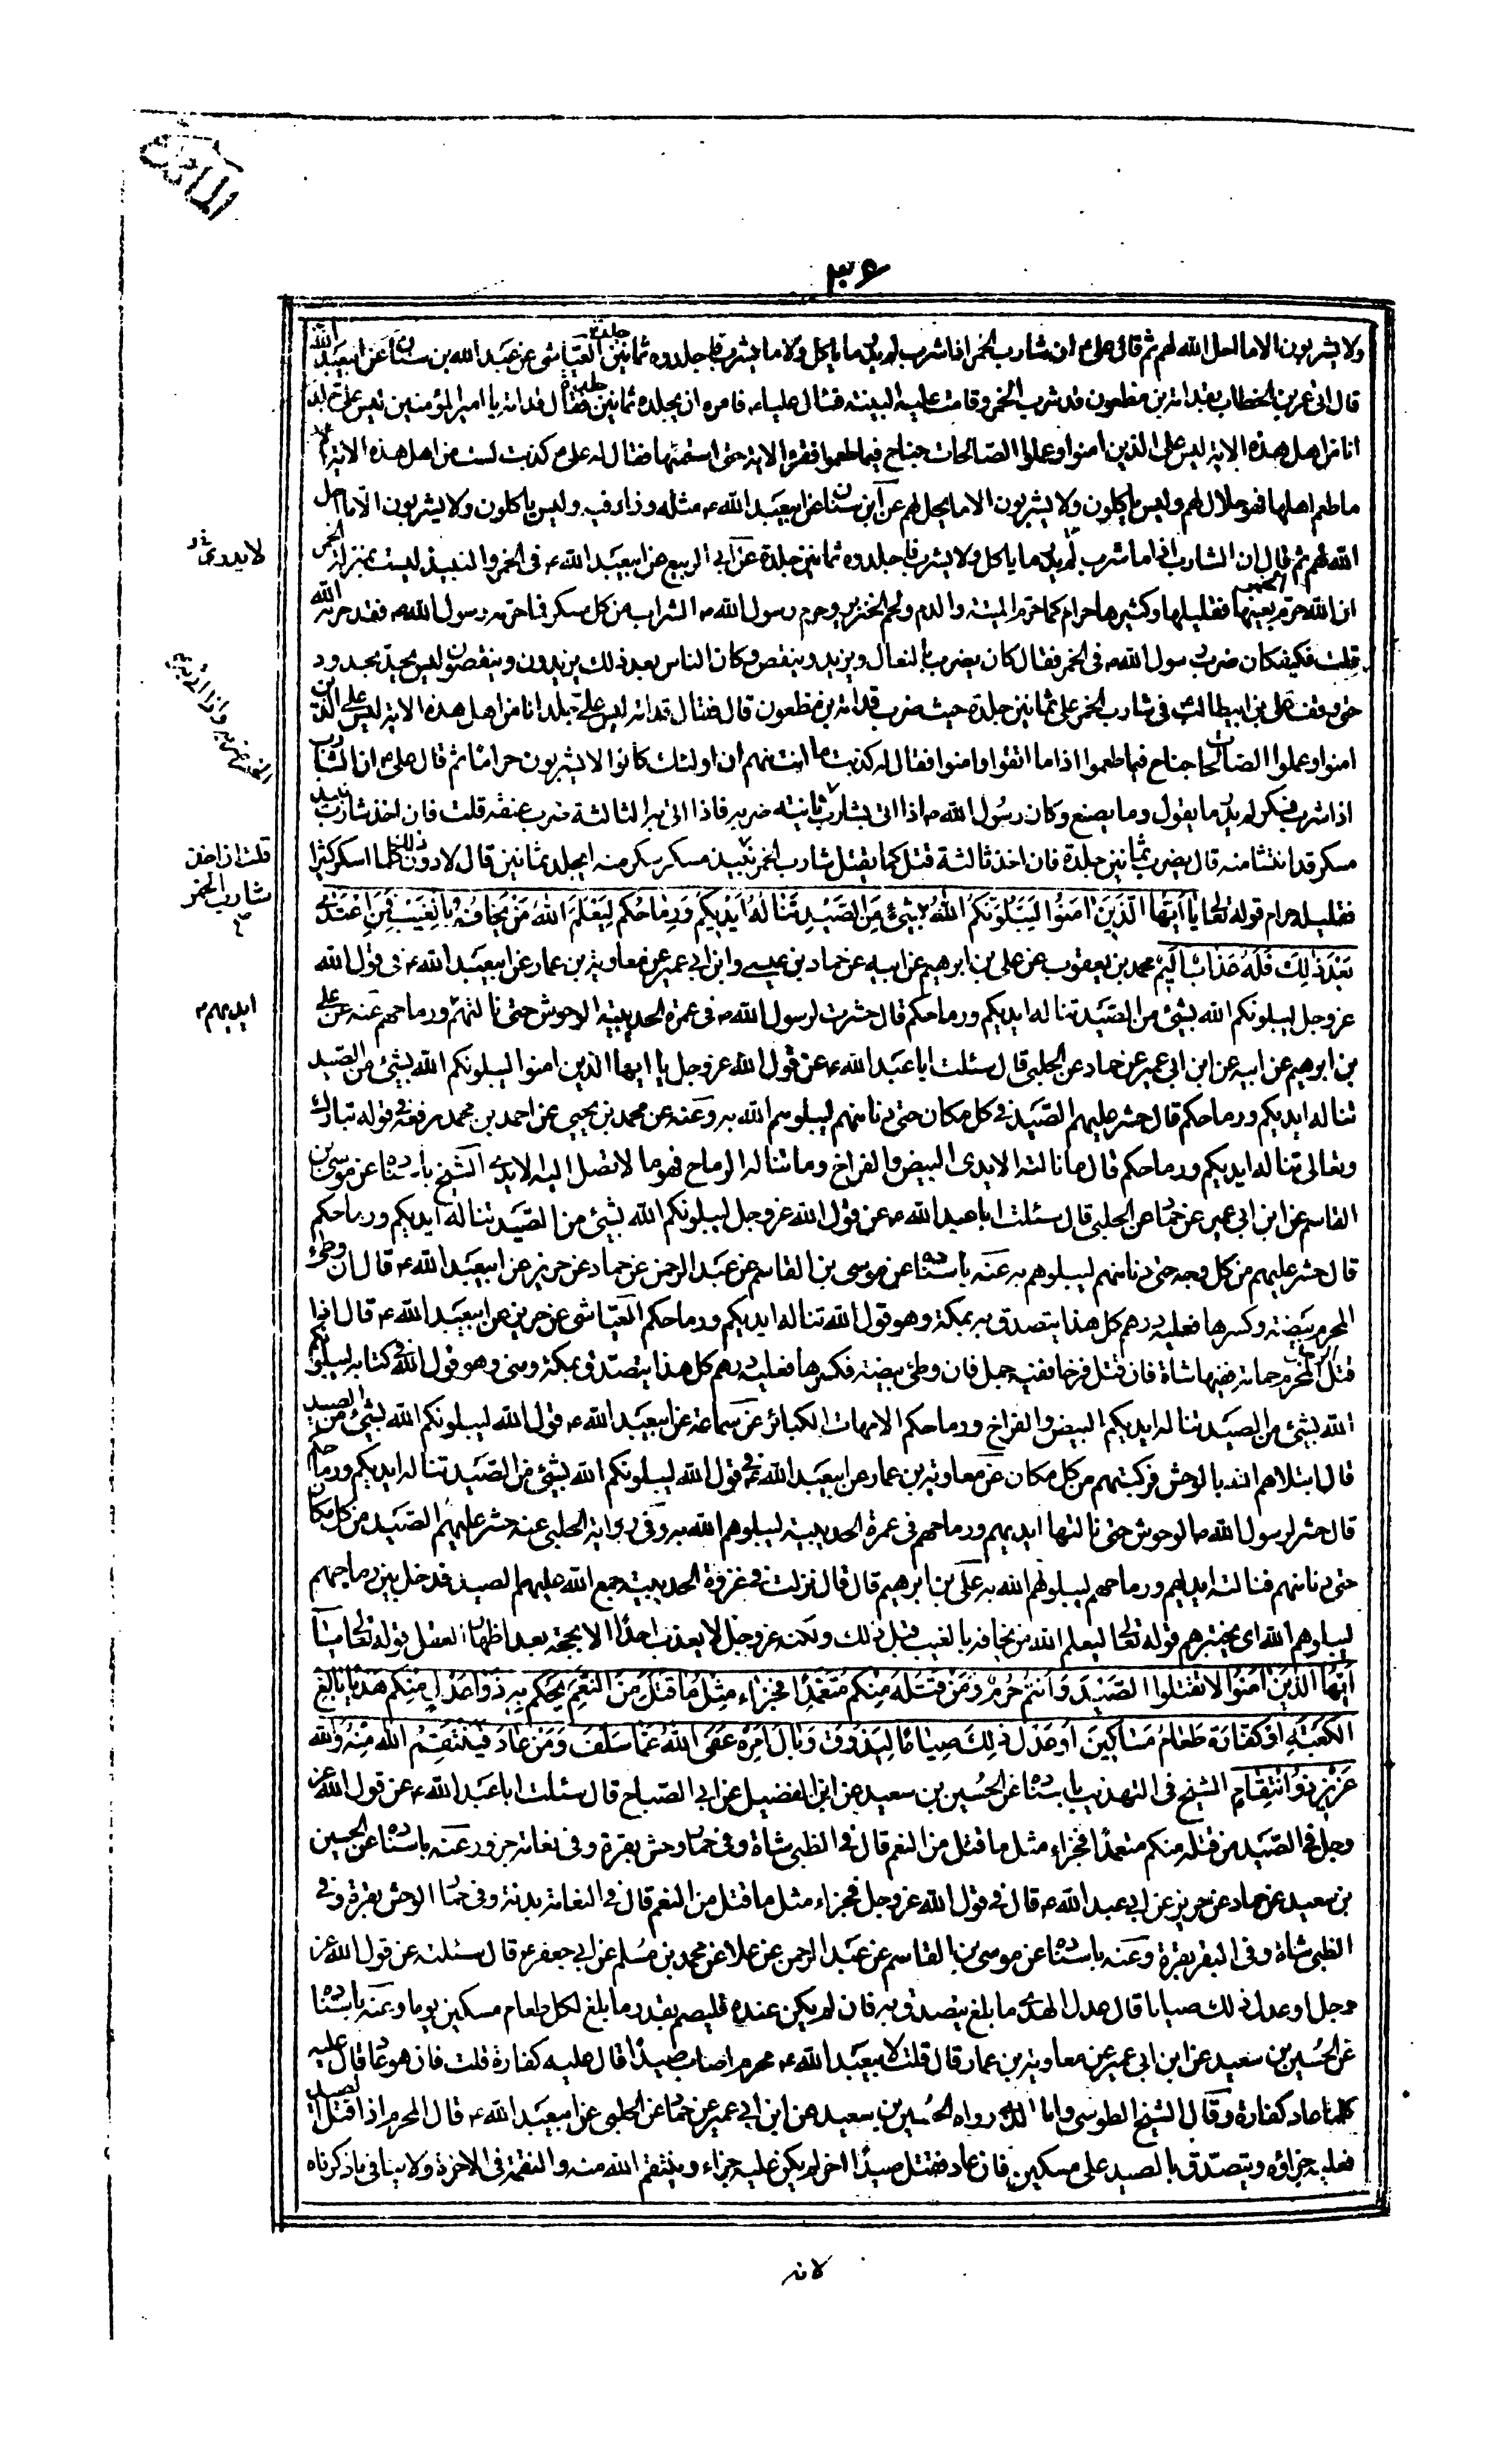 المائدة
٣٠۶
ولا يشربون الا ما احل الله لهم ثم قال علي ع ان شارب الخمر اذا شرب لم يدر ما ياكل ولا ما يشرب فاجلدوه ثمانين جلدة العياشي عن عبد الله بن سنان عن ابيعبد الله
قال اتى عمر بن الخطاب بقدامة بن مظعون قد شرب الخمر وقامت عليه البينة فسال عليا ع فامره ان يجلده ثمانين جلدة فقال قدامة يا امير المؤمنين ليس علي حد
انا من اهل هذه الاية ليس على الذين امنوا وعملوا الصالحات جناح فيما طعموا فقرء الاية حتى استتمها فقال له علي ع كذبت لست من اهل هذه الاية
ما طعم اهلها فهو حلال لهم وليس ياكلون ولا يشربون الا ما يحل لهم عن ابن سنان عن ابيعبد الله ع مثله وزاد فيه وليس ياكلون ولا يشربون الا ما احل
الله لهم ثم قال ان الشارب اذا ما شرب لم يدر ما ياكل ولا يشرب فاجلدوه ثمانين جلدة عن ابي الربيع عن ابيعبد الله ع في الخمر والنبيذ ليست بمنزلة الخمر
ان الله حرم الخمر بعينها فقليلها وكثيرها حرام كما حرم الميتة والدم ولحم الخنزير وحرم رسول الله ص الشراب من كل مسكر فما حرمه رسول الله ص فقد حرمه الله
قلت فكيف كان ضرب رسول الله ص في الخمر فقال كان يضرب بالنعال ويزيد وينقص وكان الناس بعد ذلك يزيدون وينقصون ليس بحد محدود
حتى وقف علي بن ابيطالب في شارب الخمر على ثمانين جلدة حيث ضرب قدامة بن مظعون قال فقال قدامة ليس علي جلد انا من اهل هذه الاية ليس على الذين
امنوا وعملوا الصالحات جناح فيما طعموا اذا ما اتقوا وامنوا فقال له كذبت ما انت منهم ان اولئك كانوا لا يشربون حراما ثم قال علي ع ان الشارب
اذا شرب فسكر لم يدر ما يقول وما يصنع وكان رسول الله ص اذا اتى بشارب الخمر ضربه فاذا اتى به ثانية ضربه فاذا اتى به الثالثة ضرب عنقه قلت فان اخذ شارب نبيذ
مسكر قد انتشا منه قال يضرب ثمانين جلدة فان اخذ ثالثة قتل كما يقتل شارب الخمر نبيذ مسكر سكر منه ايجلد ثمانين قال لا دون ذلك كلما اسكر كثيرا
فقليله حرام قوله تعالى يَا اَيُّهَا الَّذِينَ اٰمَنُوا لَيَبْلُوَنَّكُمُ اللهُ بِشَيْءٍ مِنَ الصَّيْدِ تَنَالُهُ اَيْدِيكُمْ وَرِمَاحُكُمْ لِيَعْلَمَ اللهُ مَنْ يَخَافُهُ بِالْغَيْبِ فَمَنِ اعْتَدٰى
بَعْدَ ذٰلِكَ فَلَهُ عَذَابٌ اَلِيمٌ محمد بن يعقوب عن علي بن ابرهيم عن ابيه عن حماد بن عيسى وابن ابي عمير عن معاوية بن عمار عن ابيعبد الله ع في قول الله
عز وجل ليبلونكم الله بشئ من الصيد تناله ايديكم ورماحكم قال حشرت لرسول الله ص في عمرة الحديبية الوحوش حتى نالتهم ورماحهم عنه عن علي
بن ابرهيم عن ابيه عن ابن ابي عمير عن حماد عن الحلبي قال سئلت ابا عبد الله ع عن قول الله عز وجل يا ايها الذين امنوا ليبلونكم الله بشئ من الصيد
تناله ايديكم ورماحكم قال حشر عليهم الصيد في كل مكان حتى دنا منهم ليبلوهم الله به وعنه عن محمد بن يحيى عن احمد بن محمد رفعه في قوله تبارك
وتعالى تناله ايديكم ورماحكم قال ما نالته الايدى البيض والفراخ وما تناله الرماح فهو ما لا تصل اليه الايدى الشيخ باسناده عن موسى بن
القاسم عن ابن ابي عمير عن حماد عن الحلبي قال سئلت ابا عبد الله ع عن قول الله عز وجل ليبلونكم الله بشئ من الصيد تناله ايديكم ورماحكم
قال حشر عليهم من كل وجه حتى دنا منهم ليبلوهم به عنه باسناده عن موسى بن القاسم عن عبد الرحمن عن حماد عن حريز عن ابيعبد الله ع قال ان وطئ
المحرم بيضة وكسرها فعليه درهم كل هذا يتصدق به بمكة وهو قول الله تناله ايديكم ورماحكم العياشي عن حريز عن ابيعبد الله ع قال اذا
قتل المحرم حمامة ففيها شاة فان قتل فرخا ففيه حمل فان وطئ بيضة فكسرها فعليه درهم كل هذا يتصدق بمكة ومنى وهو قول الله في كتابه ليبلونكم
الله بشئ من الصيد تناله ايديكم البيض والفراخ ورماحكم الامهات الكبائر عن سماعة عن ابيعبد الله ع قول الله ليبلونكم الله بشئ من الصيد
قال ابتلاهم الله بالوحش فركبتهم من كل مكان عن معاوية بن عمار عن ابيعبد الله ع في قول الله ليبلونكم الله بشئ من الصيد تناله ايديكم ورماحكم
قال حشر لرسول الله ص الوحوش حتى نالتها ايديهم ورماحهم في عمرة الحديبية ليبلوهم الله به وفي رواية الحلبي عنه حشر عليهم الصيد من كل مكان
حتى دنا منهم فنالته ايديهم ورماحهم ليبلونهم الله به علي بن ابرهيم قال قال نزلت في غزوة الحديبية جمع الله عليهم الصيد فدخل بين رماحهم
ليبلوهم الله اى يختبرهم قوله تعالى ليعلم الله من يخافه بالغيب قبل ذلك ولكنه عز وجل لا يعذب احدا الا بحجة بعد اظهار الفعل قوله تعالى يَا
اَيُّهَا الَّذِينَ اٰمَنُوا لَا تَقْتُلُوا الصَّيْدَ وَاَنْتُمْ حُرُمٌ وَمَنْ قَتَلَهُ مِنْكُمْ مُتَعَمِّدًا فَجَزَاءٌ مِثْلُ مَا قَتَلَ مِنَ النَّعَمِ يَحْكُمُ بِهِ ذَوَا عَدْلٍ مِنْكُمْ هَدْيًا بَالِغَ
الْكَعْبَةِ اَوْ كَفَّارَةٌ طَعَامُ مَسَاكِينَ اَوْ عَدْلُ ذٰلِكَ صِيَامًا لِيَذُوقَ وَبَالَ اَمْرِهِ عَفَى اللهُ عَمَّا سَلَفَ وَمَنْ عَادَ فَيَنْتَقِمُ اللهُ مِنْهُ وَاللهُ
عَزِيزٌ ذُو انْتِقَامٍ الشيخ في التهذيب باسناده عن الحسين بن سعيد عن ابن الفضيل عن ابي الصباح قال سئلت ابا عبد الله ع عن قول الله عز
وجل في الصيد من قتله منكم متعمدا فجزاء مثل ما قتل من النعم قال في الظبي شاة وفي حمار وحش بقرة وفي نعامة جزور عنه باسناده عن الحسين
بن سعيد عن حماد عن حريز عن ابي عبد الله ع قال في قول الله عز وجل فجزاء مثل ما قتل من النعم قال في النعامة بدنة وفي حمار الوحش بقرة وفي
الظبي شاة وفي البقر بقرة وعنه باسناده عن موسى بن القاسم عن عبد الرحمن عن علا عن محمد بن مسلم عن ابي جعفر ع قال سئلته عن قول الله عز
وجل او عدل ذلك صياما قال عدل الهدى ما بلغ يتصدق به فان لم يكن عنده فليصم بقدر ما بلغ لكل طعام مسكين يوما وعنه باسناده
عن الحسين بن سعيد عن ابن ابي عمير عن معاوية بن عمار قال قلت لابيعبد الله ع محرم اصاب صيدا قال عليه كفارة قلت فان هو عاد قال عليه
كلما عاد كفارة وقال الشيخ الطوسي واما الذي رواه الحسين بن سعيد عن ابن ابي عمير عن حماد عن الحلبي عن ابيعبد الله ع قال المحرم اذا قتل الصيد
فعليه جزاؤه ويتصدق بالصيد على مسكين فان عاد فقتل صيدا اخر لم يكن عليه جزاء وينتقم الله منه والنقمة في الاخرة ولا ينافي ما ذكرناه
قلت ان اخذ
شارب الخمر
ايديهم
لانه